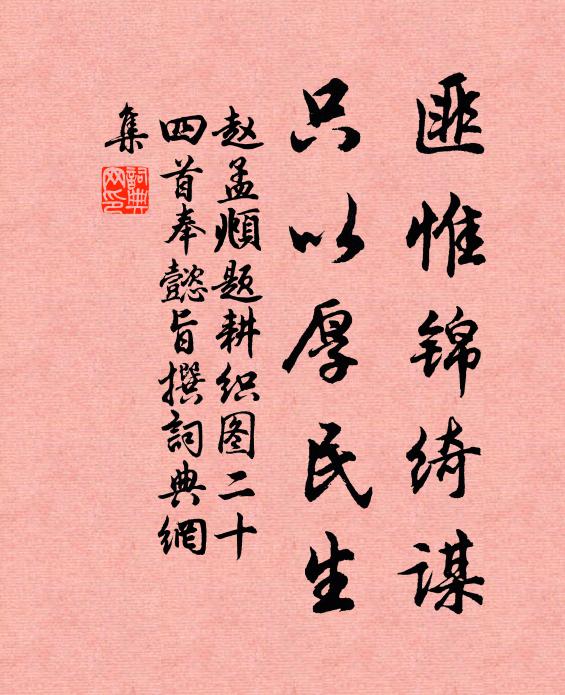 匪惟锦绮谋
只以厚民生
赵孟頫题耕织图二十
四首奉懿旨撰詞典網
集
詞典
网印